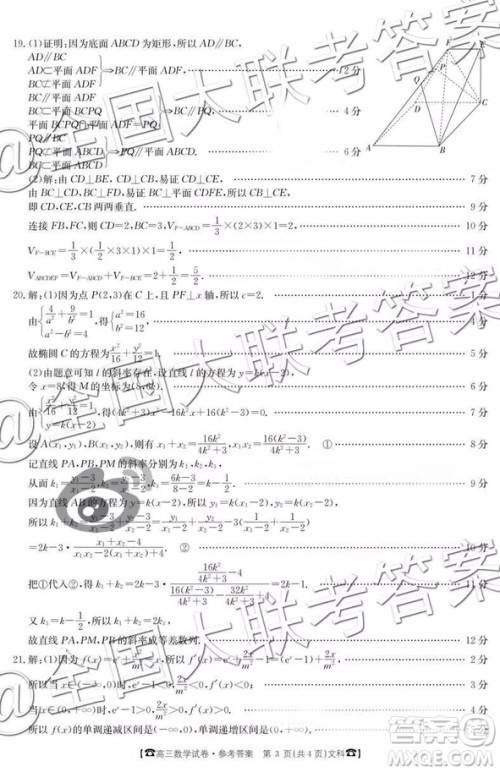 19. (1)证明:因为底面ABCD为矩形,所以AD//BC,
AD//BC
AD⊂平面ADF
BC⊄平面ADF
⇒BC//平面ADF. 2分
BC⊄平面ADF
BC⊂平面BCPQ
平面BCPQ∩平面ADF=PQ
⇒BC//PQ 4分
PQ//BC
PQ⊄平面ABCD
BC⊂平面ABCD
⇒PQ//平面ABCD. 6分
(2)解:由CD⊥BE,CD⊥CB,易证CD⊥ 7分
由BC⊥CD,BC⊥FD,易证BC⊥平面CDFE,所以CB⊥
即CD 两两垂直. 9分
连接FB,FC,则CD=2,BC=3,V_{F-ABCD}=1/3×(2×3)×1=2, 10分
V_{F-BCE}=1/3×(1/2×3×1)×1=1/2, 11分
V_{ABCDEF}=V_{F-ABCD}+V_{F-BCE}=2+1/2=5/2. 12分
20. 解:(1)因为点P(2,3)在C上,且PF⊥x轴,所以c=2. 1分
由{4/a²+9/b²=1 a²-b²=4,得{a²=16 b²=12, 4分
故椭圆C的方程为x²/16+y²/12=1. 5分
(2)由题意可知l的斜率存在,设直线l的方程为y=k(x-2),
令x=8,得M的坐标为(8,6k). 6分
由{x²/16+y²/12=1 y=k(x-2),得(4k²+3)x²-16k²x+16(k²-3)=0. 7分
设A(x₁,y₁),B(x₂,y₂),则有x₁+x₂=16k²/(4k²+3),x₁x₂=16(k²-3)/(4k²+3). ① 8分
记直线PA,PB,PM的斜率分别为k₁,k₂,k₃,
从而k₁=(y₁-3)/(x₁-2),k₂=(y₂-3)/(x₂-2),k₃=(6k-3)/(8-2)=k-1/2. 9分
因为直线AB的方程为y=k(x-2),所以y₁=k(x₁-2),y₂=k(x₂-2),
所以k₁+k₂=(y₁-3)/(x₁-2)+(y₂-3)/(x₂-2)=y₁/(x₁-2)+y₂/(x₂-2)-3(1/(x₁-2)+1/(x₂-2))
=2k-3·(x₁+x₂-4)/(x₁x₂-2(x₁+x₂)+4). ② 10分
把①代入②,得k₁+k₂=2k-3·(16k²/(4k²+3)-4)/(16(k²-3)/(4k²+3)-32k²/(4k²+3)+4)=2k-1. 11分
又k₃=k-1/2,所以k₁+k₂=2k₃,
故直线PA,PM,PB的斜率成等差数列. 12分
21. 解:(1)因为f(x)=eˣ+x²/m²-x,所以f′(x)=eˣ-1+2x/m². 2分
所以当x∈(-∞,0)时,eˣ-1<0,2x/m²<0,所以f′(x)<0; 3分
当x∈(0,+∞)时,eˣ-1>0,2x/m²>0,所以f′(x)>0. 4分
所以f(x)的单调递减区间是(-∞,0),单调递增区间是(0,+∞).
☎高三数学试卷·参考答案 第3页(共4页)文科☎
@全国大联考答案
@全国大联考答案